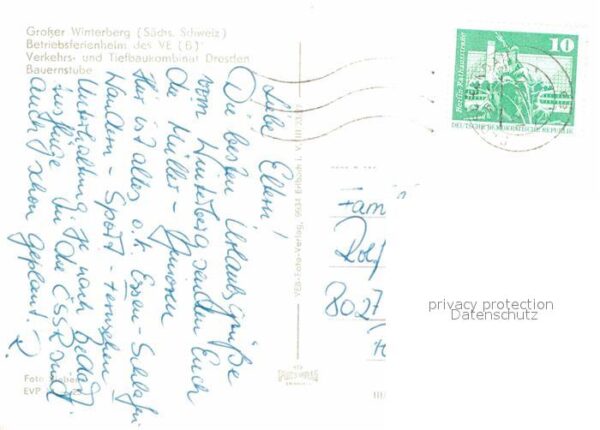 Großer Winterberg (Sächs. Schweiz)
Betriebsferienheim des VE (B)
Verkehrs- und Tiefbaukombinat Dresden
Bauernstube
Liebe Eltern!
Die besten Urlaubsgrüße
vom Winterberg senden Euch
die Müller-Junioren
Hier ist alles o.k. Essen-Schlafen
Wandern-Sport-Fernsehen
Unterhaltung je nach Bedarf
Ausflüge in die ČSSR sind
auch schon geplant.
Foto
EVP
VEB-Foto-Verlag, 9634 Erlbach i. V.
10
Berlin, Rathausstraße
DEUTSCHE DEMOKRATISCHE REPUBLIK
Fam
Rolf
8027
privacy protection
Datenschutz